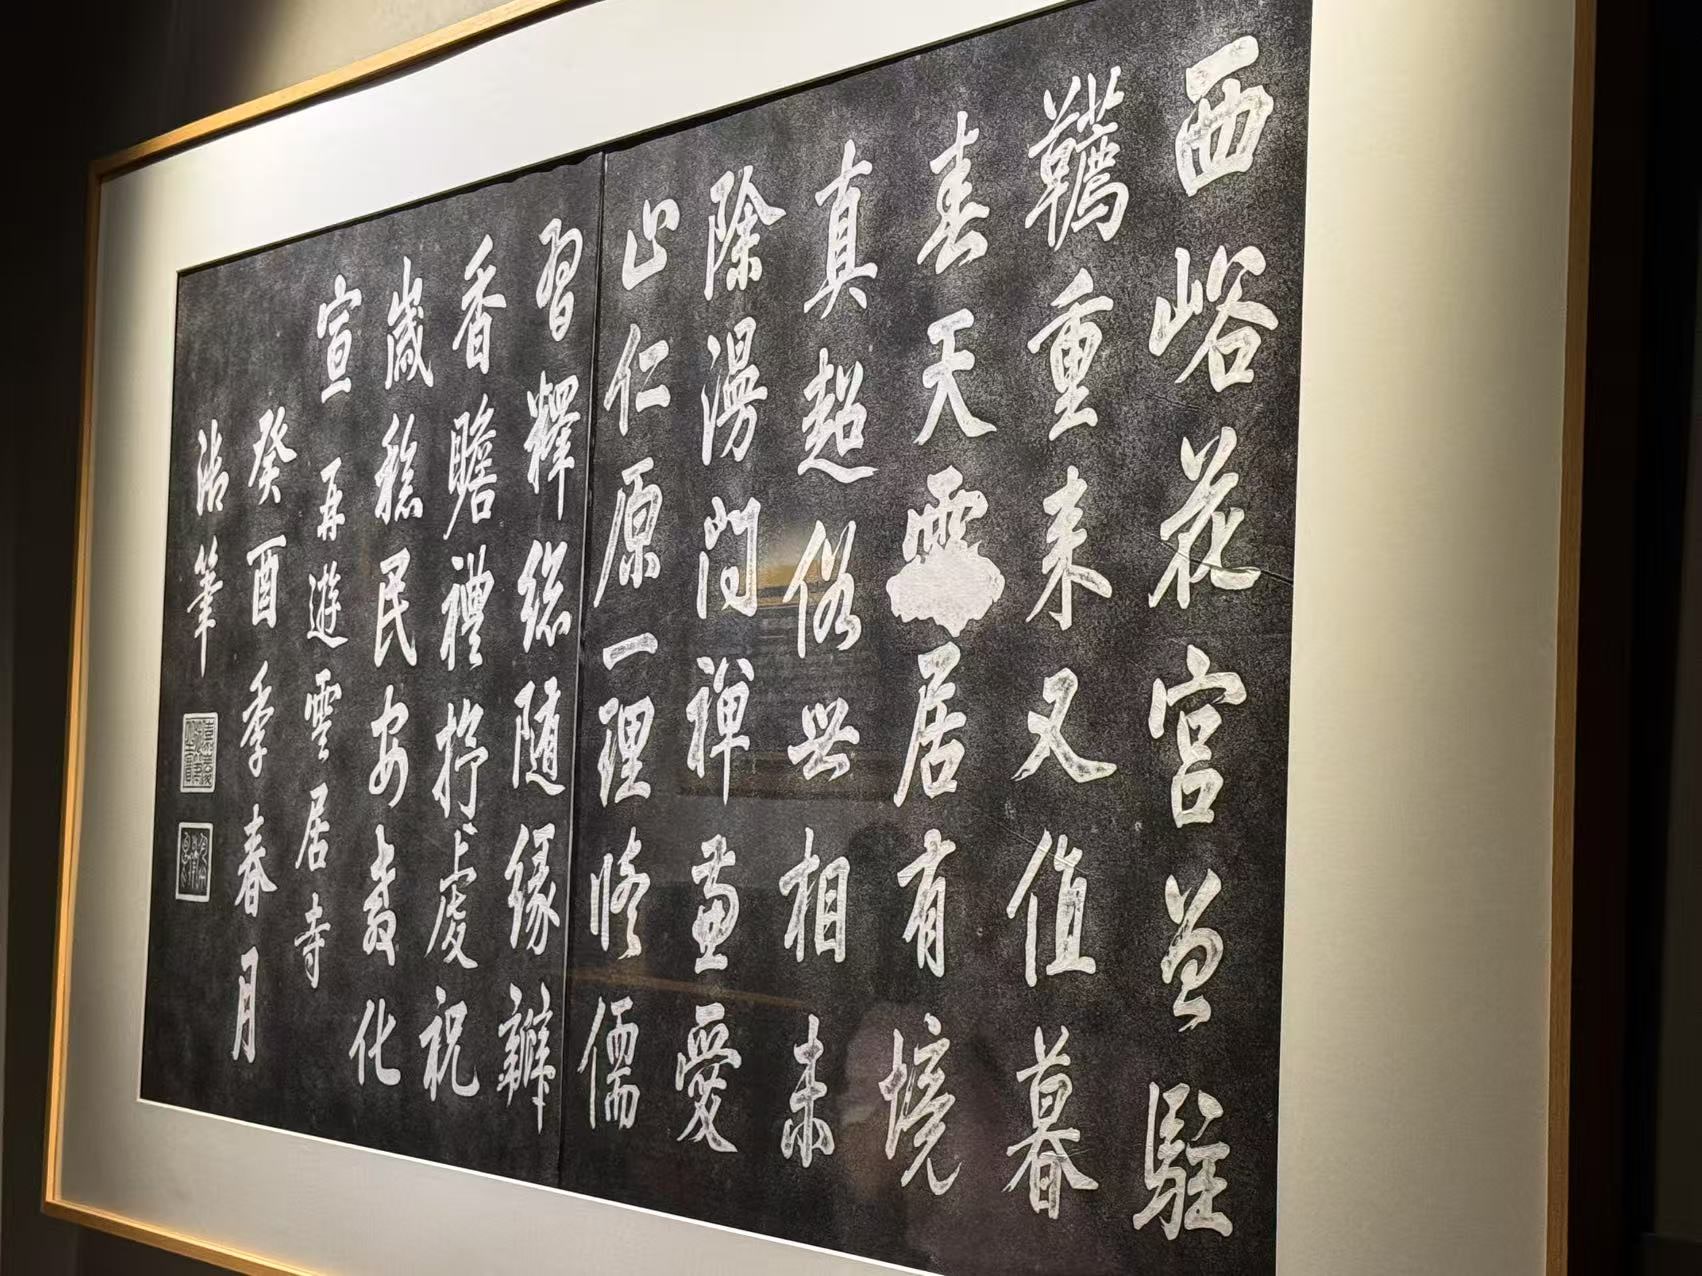 西峪花宫曾駐
韉重来又值暮
春天雲居有境
真超俗世相未
除漫問禅兼愛
止仁原一理修儒
習釋總随缘瓣
香瞻禮抒虔祝
歲稔民安教化
宣 再遊雲居寺
癸酉季春月
御筆